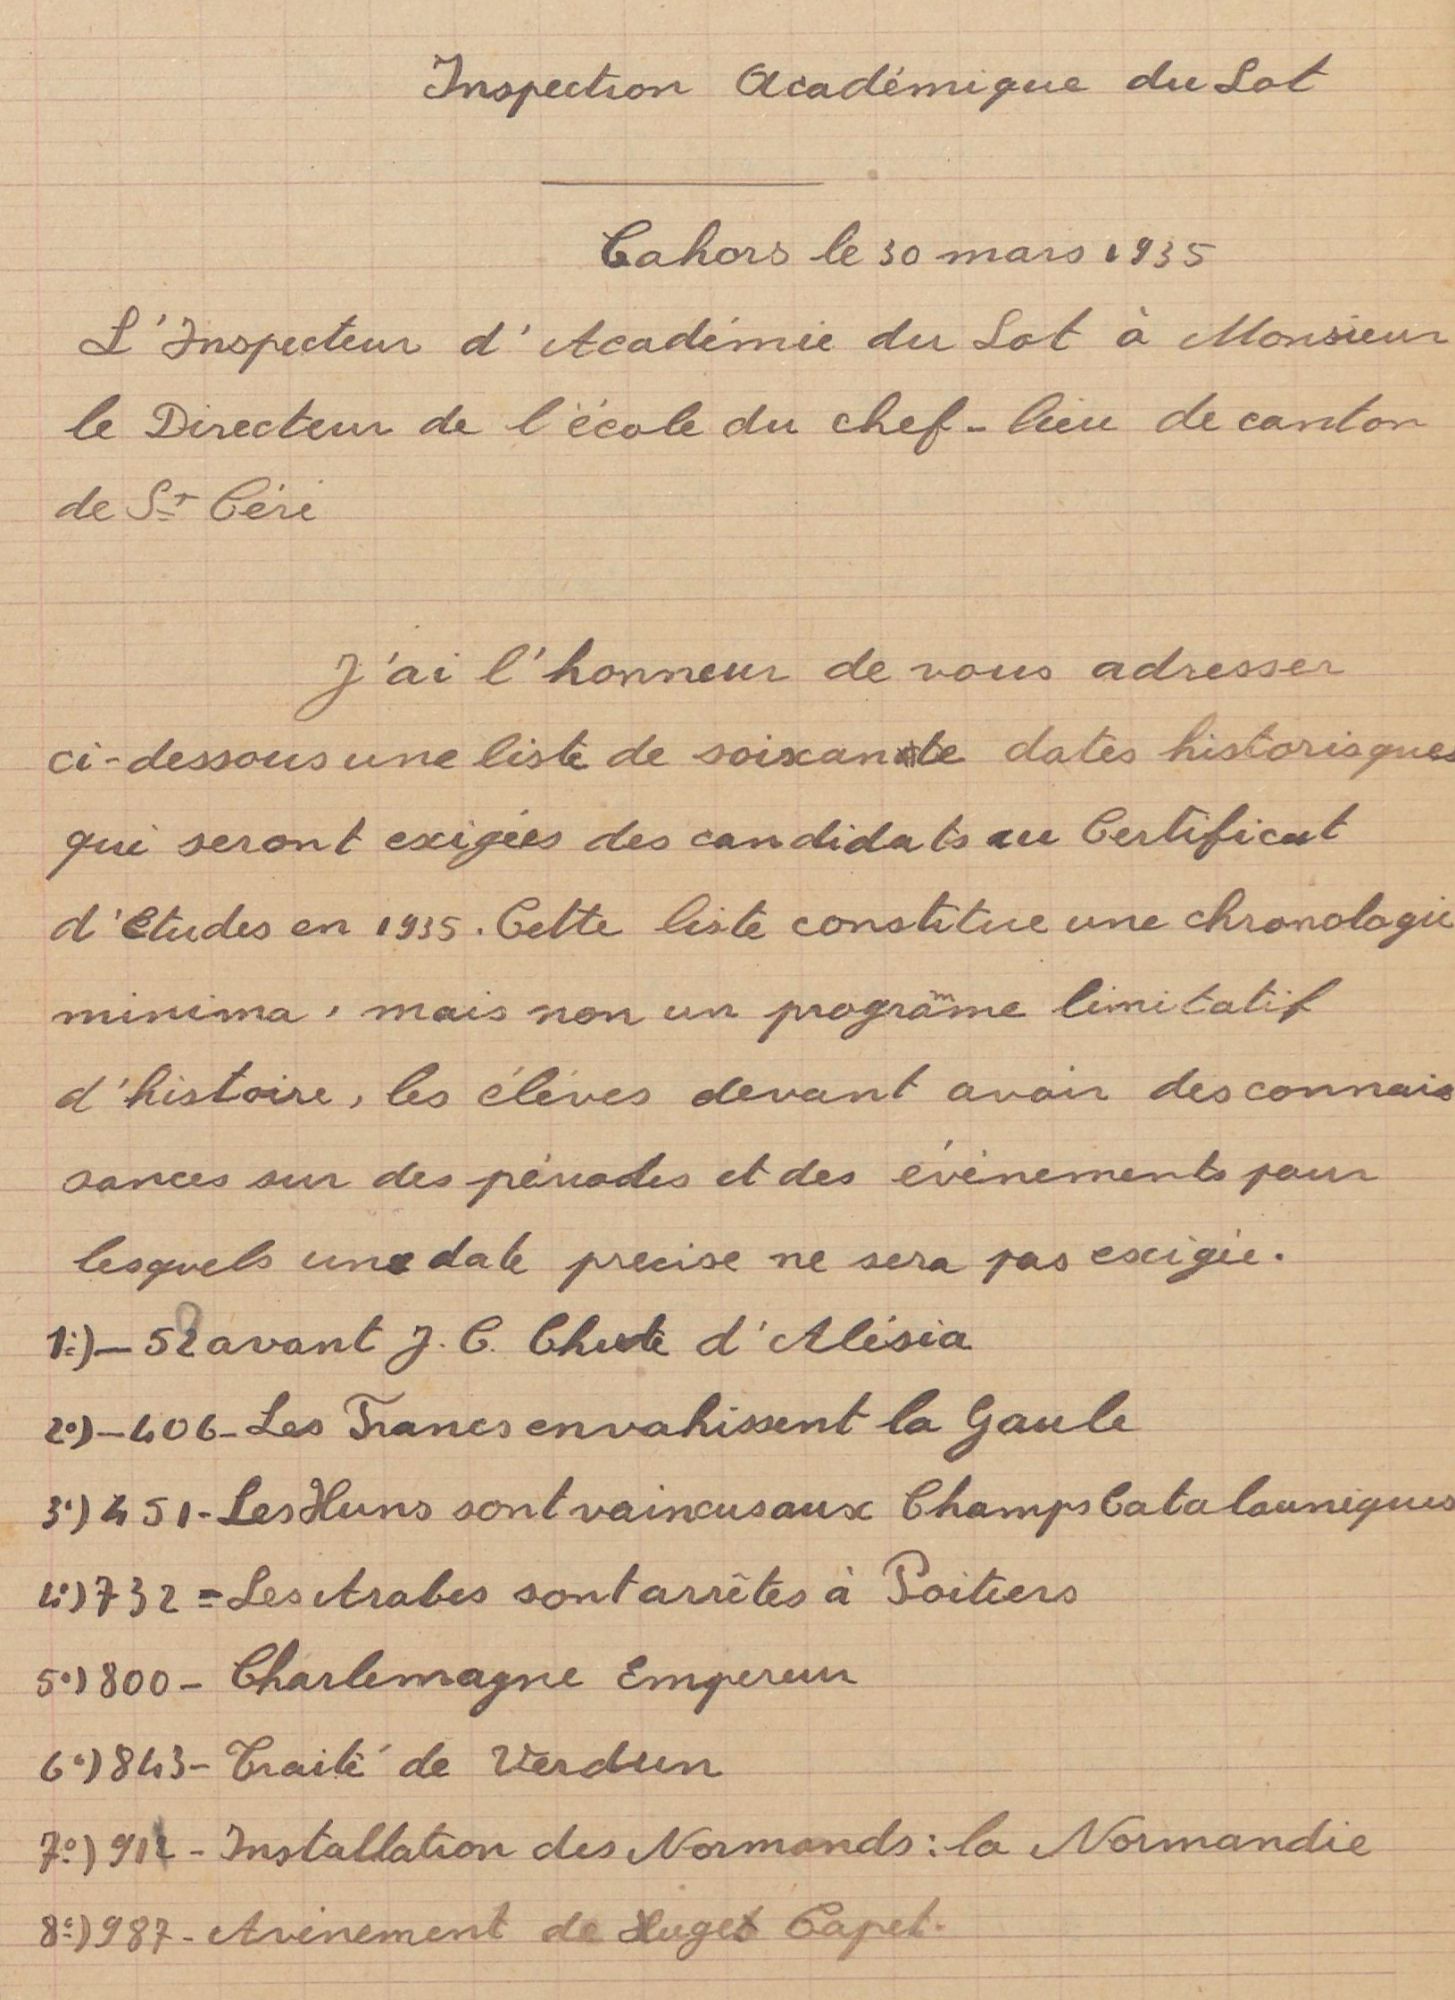 Inspection Académique du Lot
Cahors le 30 mars 1935
L'Inspecteur d'Académie du Lot à Monsieur
le Directeur de l'école du chef-lieu de canton
de St Céré
J'ai l'honneur de vous adresser
ci-dessous une liste de soixante dates historisques
qui seront exigées des candidats au Certificat
d'Etudes en 1935. Cette liste constitue une chronologie
minima, mais non un programme limitatif
d'histoire, les élèves devant avoir des connais
sances sur des périodes et des évènements pour
lesquels une date precise ne sera pas exigée.
1º)- 52 avant J. C. Chute d'Alésia
2º)-406-Les Francs envahissent la Gaule
3º) 451-Les Huns sont vaincus aux Champs Catalauniques
4º) 732=Les Arabes sont arrêtés à Poitiers
5º) 800- Charlemagne Empereur
6º) 843- Traité de Verdun
7º) 911 - Installation des Normands: la Normandie
8º) 987- Avènement de Huges Capet.